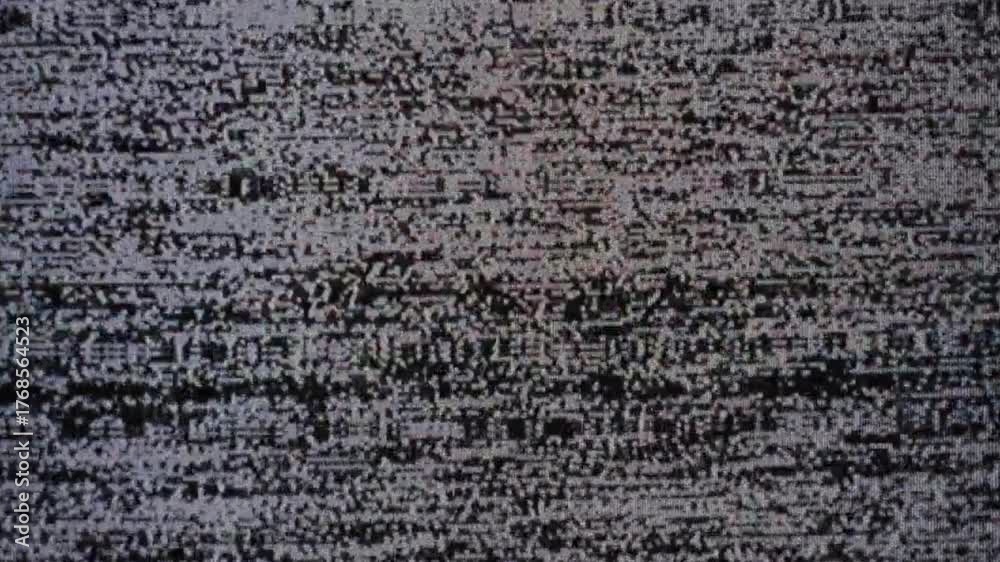 Adobe Stock | #1768564523